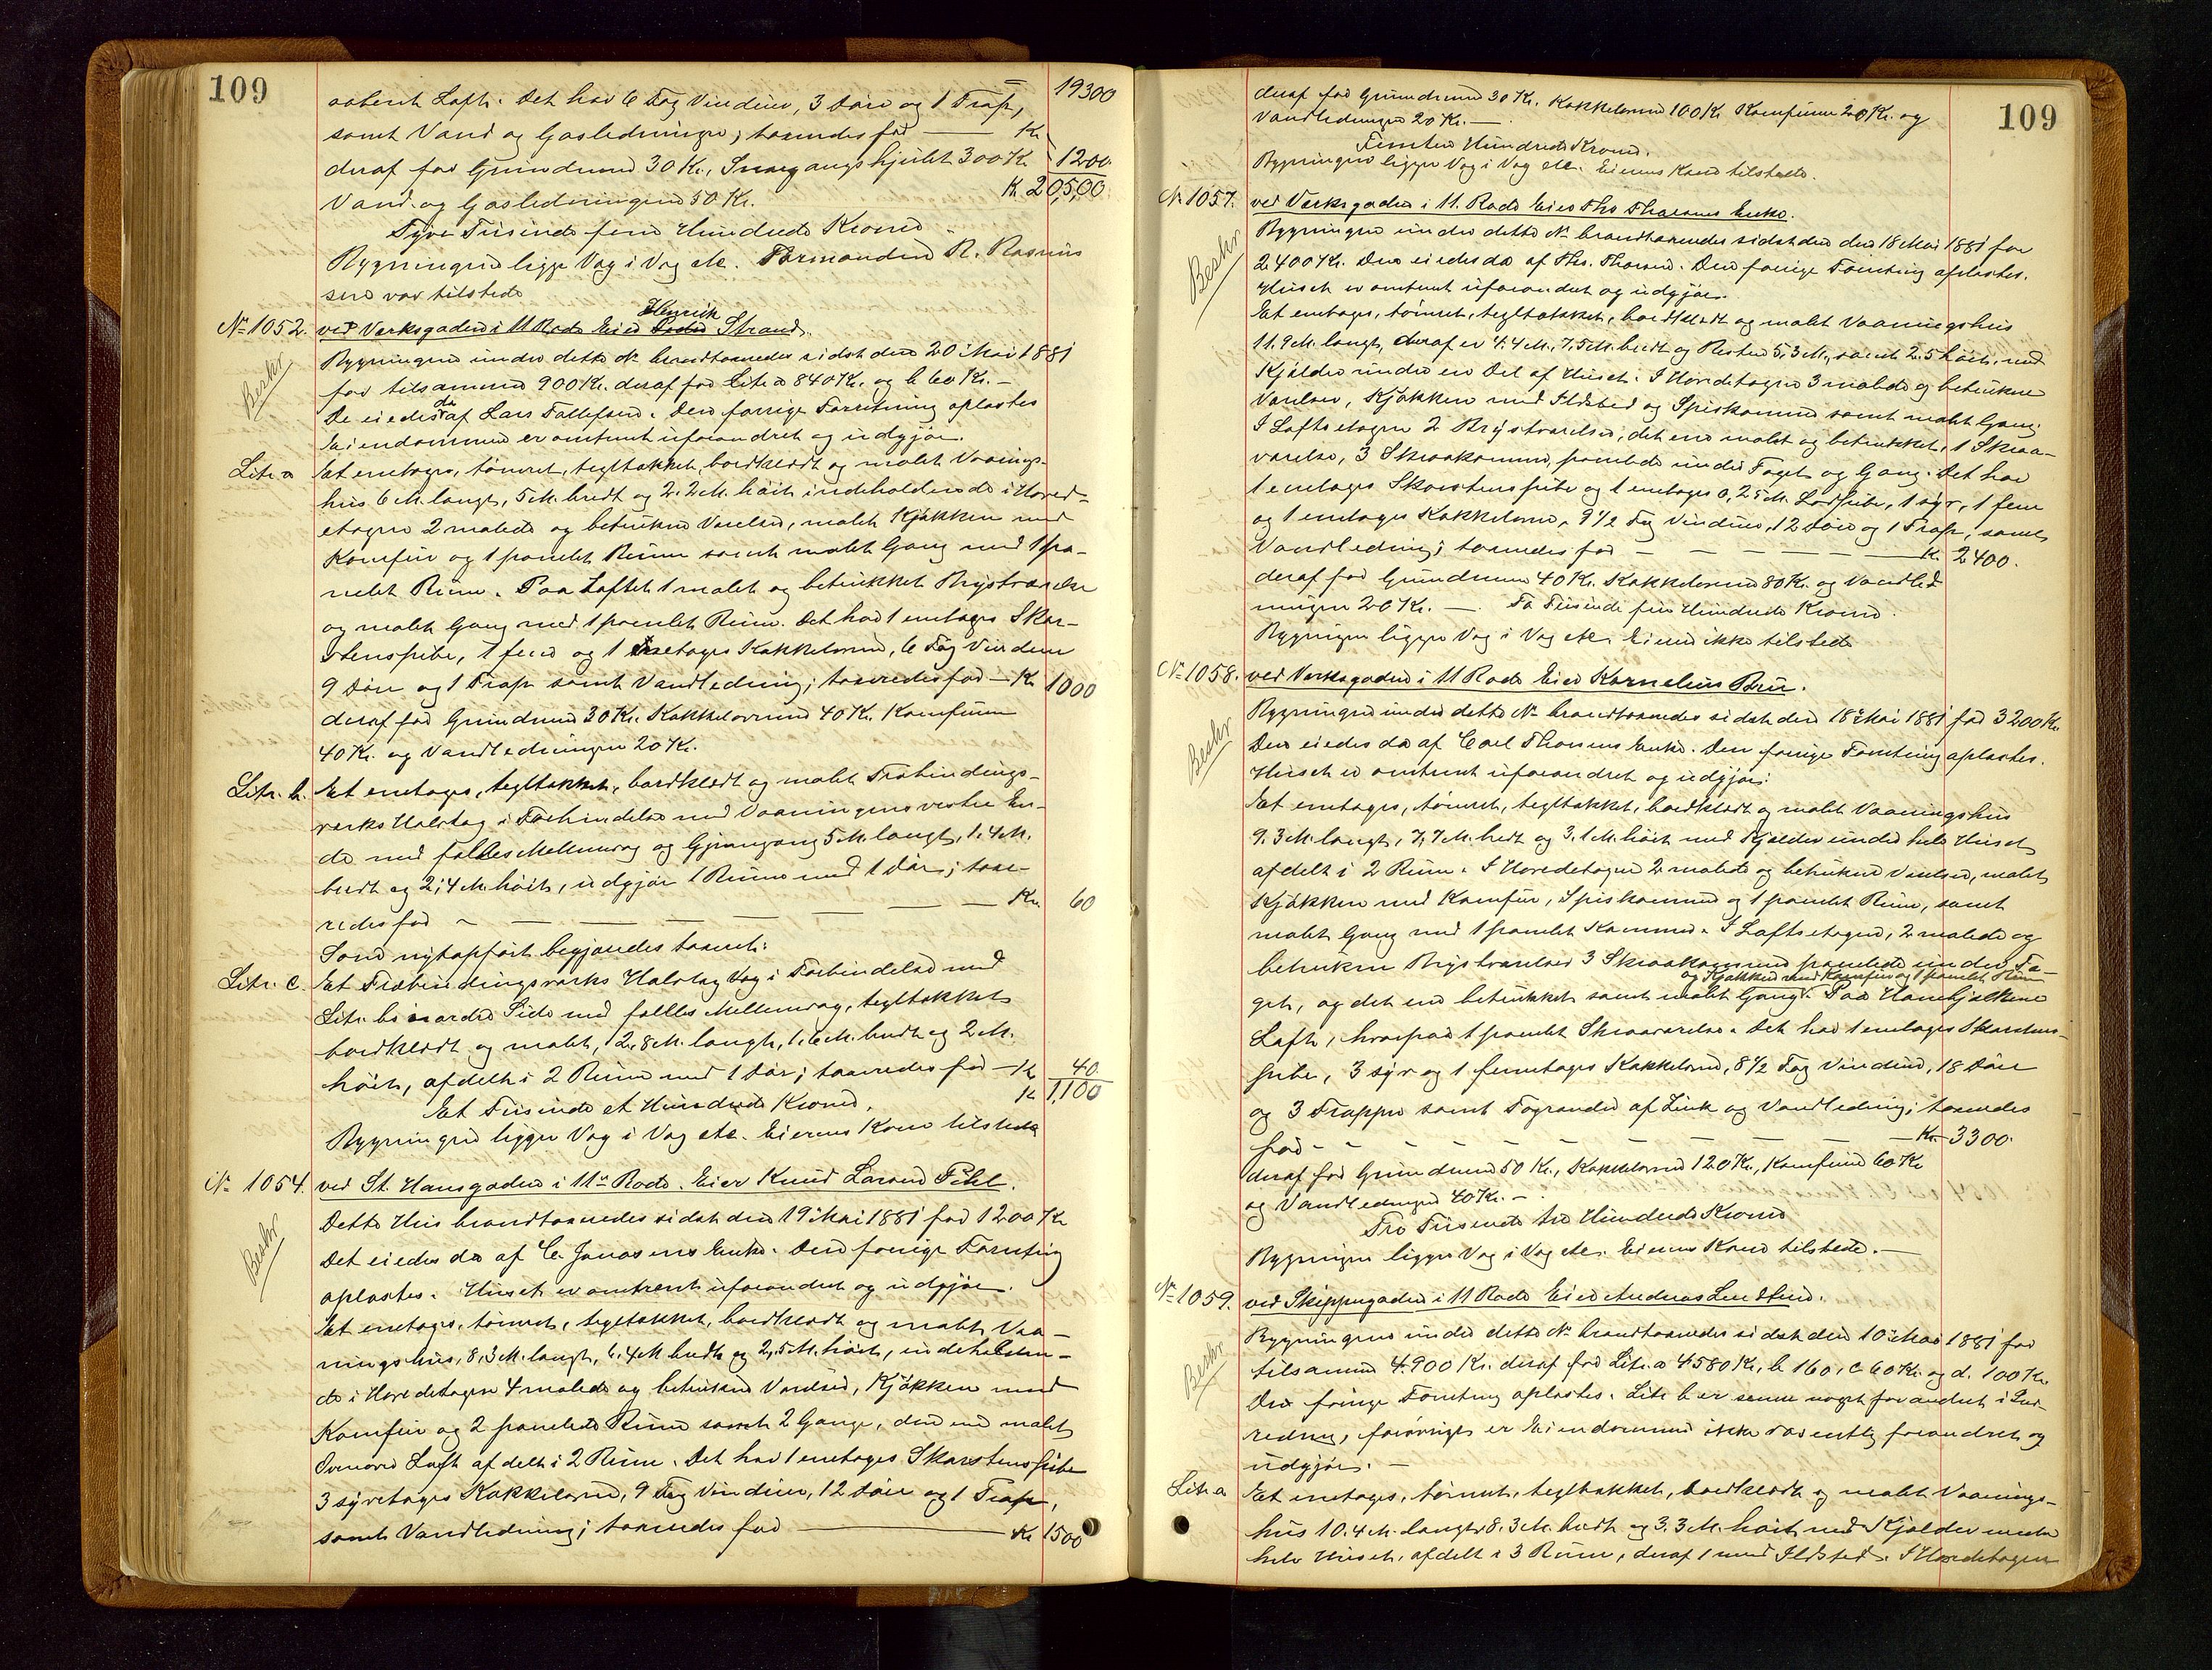 109
aabent Loft. Det har 6 Fag Vinduer, 3 Døre og 1 Trap,
19300
samt Vand og Gasledninger; taxeredes for — Kr.
1200
deraf for Grundmuren 30 Kr., Inngangshjulet 300 Kr.
Vand og Gasledningerne 50 Kr.
Kr. 20,500.
Tyve Tusinde fem Hundrede Kroner
Bygningerne ligge Væg i Væg etc. Formanden R. Rasmus
sen var tilstede
Henrik
No 1052. ved Verksgaden i 11 Rode Eier Peder Strand.
Beskr
Bygningerne under dette No brandtaxeredes sidst den 20 Mai 1881
for tilsammen 900 Kr. deraf for Litr. a 840 Kr. og b 60 Kr. —
De eiedes da af Lars Tallefsen. Den forrige Forretning oplæstes
Eiendommen er omtrent uforandret og udgjør.
Litr. a Et enetages, tømret, tegltækket, bordklædt og malet Vaanings-
hus 6 M. langt, 5 M. bredt og 2.2 M. høit indeholdende i Hoved-
etagen 2 malede og betrukne Værelser, malet Kjøkken med
Komfur og 1 panelet Rum samt malet Gang med 1 pa-
nelet Rum. Paa Loftet 1 malet og betrukket Brystværelse
og malet Gang med 1 panelet Rum. Det har 1 enetages Skor-
stenspibe, 1 fem og 1 enetages Kakkelovne, 6 Fag Vinduer
9 Døre og 1 Trap samt Vandledning; taxeredes for — Kr. 1000
deraf for Grundmuren 30 Kr. Kakkelovnene 40 Kr. Komfuren
40 Kr. og Vandledningen 20 Kr.
Litr. b. Et enetages, tegltækket, bordklædt og malet Træbindings-
verks Halvtag i Forbindelse med Vaaningens vestre En-
de med fælles Mellemvæg og Gjennemgang 5 M. langt, 1.4 M.
bredt og 2,4 M. høit, udgjør 1 Rum med 1 Dør; taxe-
redes for — — — — — — Kr. 60
Som nytopført begjæredes taxeret:
Litr. c. Et Træbindingsverks Halvtag Væg i Forbindelse med
Litr. b's nordre Side med fælles Mellemvæg, tegltækket
bordklædt og malet, 2,8 M. langt, 1,6 M. bredt og 2 M.
høit, afdelt i 2 Rum med 1 Dør; taxeredes for — Kr. 40.
Et Tusinde et Hundrede Kroner.
Kr. 1,100
Bygningerne ligger Væg i Væg etc. Eierens Kone tilstede
No 1054. ved St. Hansgaden i 11te Rode. Eier Knud Larsen Pihl.
Beskr
Dette Hus brandtaxeredes sidst den 19 Mai 1881 for 1200 Kr
Det eiedes da af C. Jonasens Enke. Den forrige Forretning
oplæstes. Huset er omtrent uforandret og udgjør.
Et enetages, tømret, tegltækket, bordklædt og malet Vaa-
ningshus, 8,3 M. langt, 6,4 M bredt og 2,5 M. høit, indeholden-
de i Hovedetagen 4 malede og betrukne Værelser, Kjøkken med
Komfur og 2 panelede Rum samt 2 Gange, den ene malet
Ovenover Loft afdelt i 2 Rum. Det har 1 enetages Skorstenspibe
3 syvetages Kakkelovne, 9 Fag Vinduer, 12 Døre og 1 Trap,
samt Vandledning; taxeredes for — Kr. 1500
109
deraf for Grundmuren 30 Kr. Kakkelovnene 100 Kr Komfuren 20 Kr. og
Vandledningen 20 Kr. —
Femten Hundrede Kroner.
Bygningen ligger Væg i Væg etc. Eierens Kone tilstede.
No 1057. ved Verksgaden i 11. Rode Eier Ths Thorsens Enke.
Beskr
Bygningen under dette No brandtaxeredes sidst den 18 Mai 1881 for
2400 Kr. Den eiedes da af Ths. Thorsen. Den forrige Forretning oplæstes.
Huset er omtrent uforandret og udgjør.
Et enetages, tømret, tegltækket, bordklædt og malet Vaaningshus
11.9 M. langt, deraf er 4.4 M. 7,5 M. bredt og Resten 5,3 M., samt 2,5 høit, med
Kjælder under en Del af Huset. I Hovedetagen 3 malede og betrukne
Værelser, Kjøkken med Ildsted og Spiskammer samt malet Gang.
I Loftsetagen 2 Brystværelser, det ene malet og betrukket, 1 Skraa-
værelse, 3 Skraakammer, panelede under Taget og Gang. Det har
1 enetages Skorstenspibe og 1 enetages 0,25 M. Lodpibe, 1 syv, 1 fem
og 1 enetages Kakkelovne, 9 1/2 Fag Vinduer, 12 Døre og 1 Trap, samt
Vandledning; taxeredes for — — — — — — Kr. 2400.
deraf for Grundmuren 40 Kr. Kakkelovnene 80 Kr. og Vandled
ningen 20 Kr. — To Tusinde fire Hundrede Kroner.
Bygningen ligger Væg i Væg etc. Eieren ikke tilstede
No 1058. ved Verksgaden i 11 Rode Eier Kornelius Bru.
Beskr
Bygningen under dette No brandtaxeredes sidst den 18 Mai 1881 for 3200 Kr.
Den eiedes da af Carl Thorsens Enke. Den forrige Forretning oplæstes.
Huset er omtrent uforandret og udgjør:
Et enetages, tømret, tegltækket, bordklædt og malet Vaaningshus
9.3 M. langt, 7,7 M. bredt og 3.1 M. høit med Kjælder under hele Huset
afdelt i 2 Rum. I Hovedetagen 2 malede og betrukne Værelser, malet
Kjøkken med Komfur, Spiskammer og 1 panelet Rum, samt
malet Gang med 1 panelet Kammer. I Loftsetagen, 2 malede og
betrukne Brystværelser 3 Skraakammer panelede under Ta-
og Kjøkken med Komfur og 1 panelet Rum
get, og det ene betrukket samt malet Gang. Paa Hanebjælkene
Loft, hvorpaa 1 panelet Skraaværelse. Det har 1 enetages Skorstens-
pibe, 3 syv og 1 femetages Kakkelovne, 8 1/2 Fag Vinduer, 18 Døre
og 3 Trapper samt Tagrender af Zink og Vandledning; taxeredes
for — — — — — — — — Kr. 3300.
deraf for Grundmuren 50 Kr., Kakkelovnene 120 Kr., Komfurene 60 Kr
og Vandledningen 40 Kr. —
Tre Tusinde tre Hundrede Kroner
Bygningen ligger Væg i Væg etc. Eierens Kone tilstede. —
No 1059. ved Skippergaden i 11 Rode Eier Andreas Lendsen.
Beskr
Bygningerne under dette No brandtaxeredes sidst den 10 Mai 1881 for
tilsammen 4.900 Kr. deraf for Litr. a 4580 Kr., b 160, c 60 Kr. og d. 100 Kr.
Den forrige Forretning oplæstes. Litr. b er noget forandret i Ind-
redning, forøvrigt er Eiendommen ikke væsentlig forandret og
udgjør. —
Litr. a Et enetages, tømret, tegltækket, bordklædt og malet Vaanings-
hus 10.4 M. langt, 8.3 M. bredt og 3.3 M. høit med Kjælder under
hele Huset, afdelt i 3 Rum, deraf 1 med Ildsted. I Hovedetagen